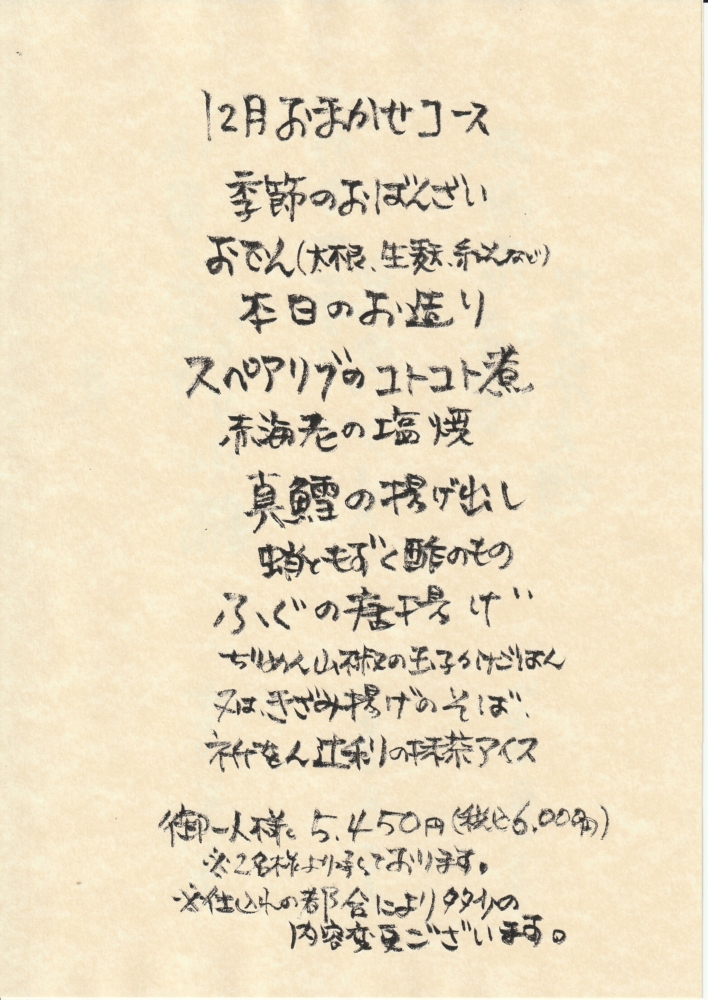 12月おまかせコース
季節のおばんざい
おでん(大根、生麩、など)
本日のお造り
スペアリブのコトコト煮
赤海老の塩焼
真鱈の揚げ出し
蛸ともずく酢のもの
ふぐの唐揚げ
ぢりめん山椒の玉子かけごはん
又は、きざみ揚げのそば、
祇をん辻利の抹茶アイス
御一人様、5,450円(税込6,000円)
※2名様より承っております。
※仕込れの都合により多少の
内容変更ございます。